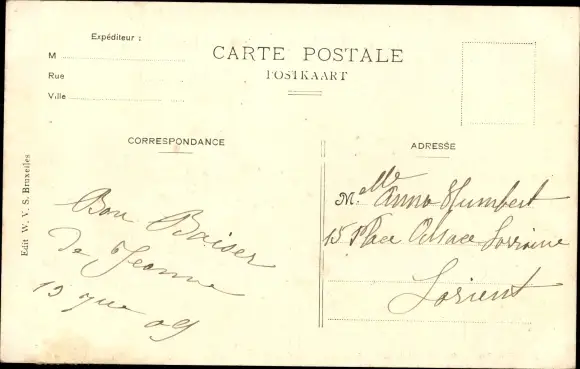 Expéditeur :
M
Rue
Ville
CARTE POSTALE
POSTKAART
CORRESPONDANCE
ADRESSE
Edit W. V. S. Bruxelles
Bon Baiser
de Jeanne
13 09
Melle Anna Humbert
15 Place Alsace Lorraine
Lorient